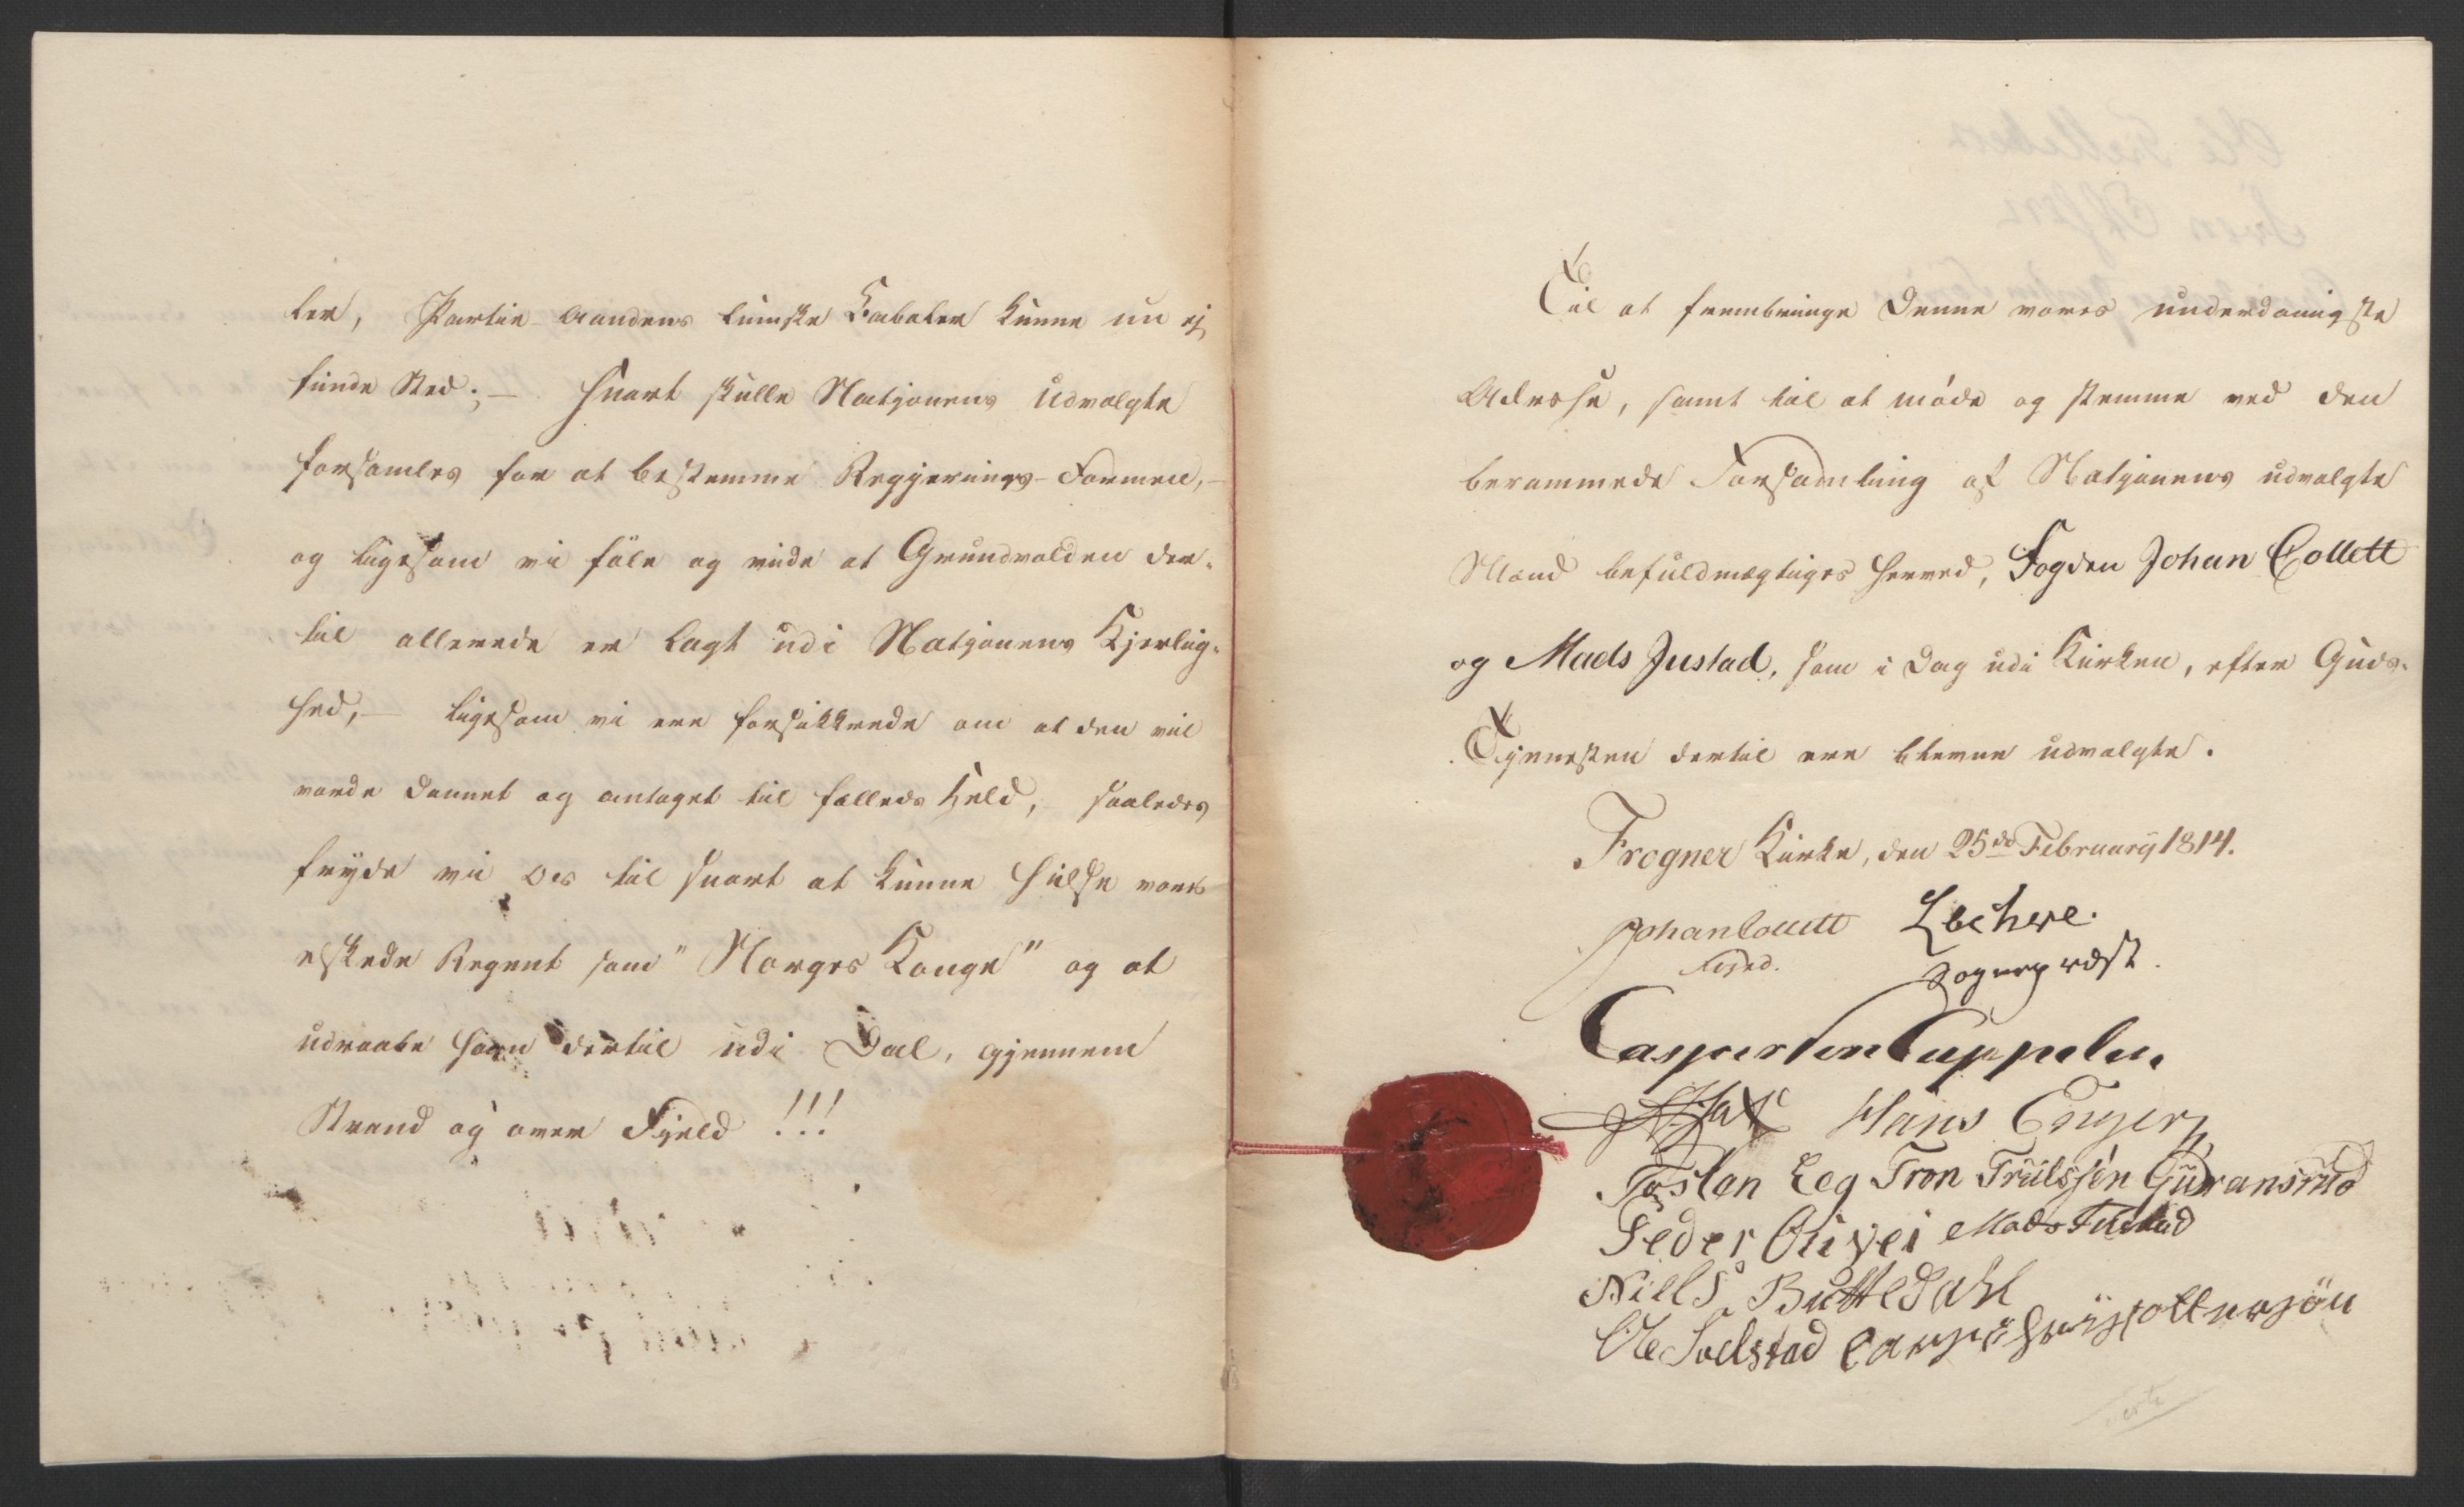 ler, Partie-Aandens lumske Kabaler kunne nu ej
finde Sted; — Snart skulle Natjonens Udvalgte
forsamles for at bestemme Regjerings-Formen, —
og ligesom vi föle og viide at Grundvolden der-
til allerede er lagt udi Natjonens Kjerlig-
hed, — ligesom vi ere forsikkrede om at den vil
vorde dannet og antaget til fælleds Held, saaledes
fryde vi os til snart at kunne hilse vores
elskede Regent som "Norges Konge" og at
udraabe ham dertil udi Dal, gjennem
Strand og over Fjeld!!!
Til at frembringe denne vores underdanigste
Adresse, samt til at möde og stemme ved den
berammede Forsamling af Natjonens udvalgte
Mænd befuldmægtiges herved, Fogden Johan Collett
og Mads Justad, som i Dag udi Kirken, efter Guds-
Tjenesten dertil ere blevne udvalgte.
Frogner Kirke, den 25de February 1814.
Johan Collett Zechere.
Foged. Sogneprest.
Caspar von Cappelen.
Hans Enger
Tosten Eeg Tron Trulssen Guransrud
Peder Mads Justad
Niels Buttedahl
Ole Solstad
verte